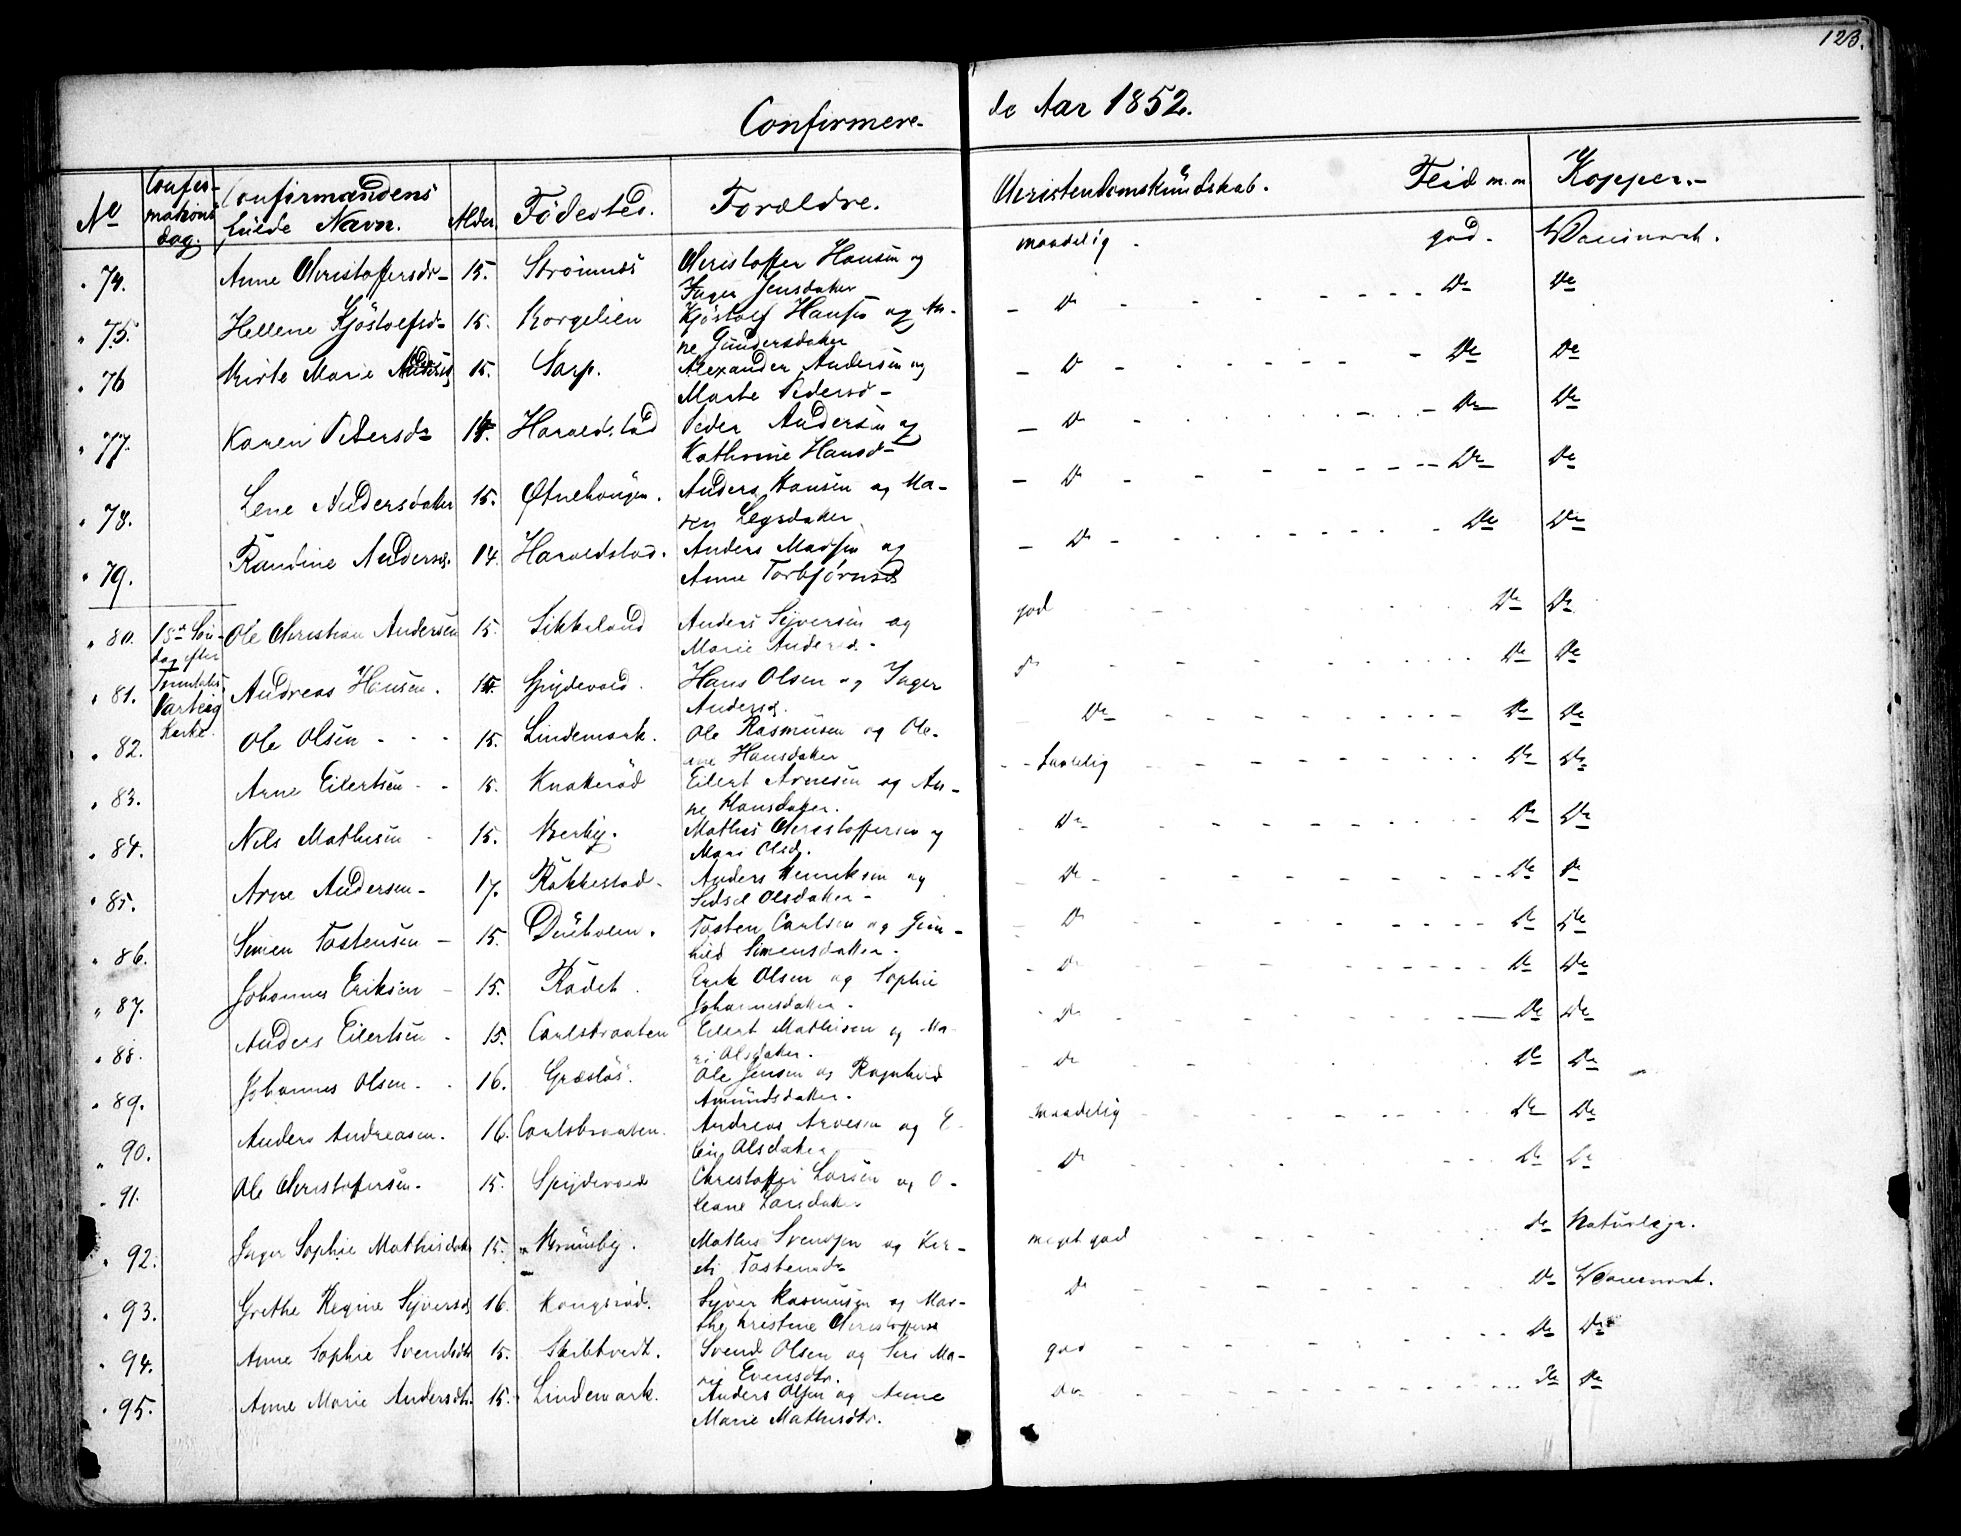 123.
Confirmere-
de Aar 1852.
No Confirmations dag. Confirmandens fulde Navn. Alder. Födested. Forældre. Christendomskundskab. Flid m. m. Kopper.-
" 74. Anne Christoffersdr- 15. Strömnes Christoffer Hansen og maadelig - god. Vaccineret.
Inger Jensdatter
" 75. Hellene Kjöstolfsd- 15. Borgelien Kjöstolf Hansen og An- - Do - - - - - Do Do
ne Gundersdatter
" 76 Kirte Marie 15. Sarp. Alexander Andersen og - Do - - - - - Do Do
Marte Pedersd-
" 77. Karen Petersdr 14. Haraldstad Peder Andersen og - Do - - - - - Do Do
Kathrine Hansd-
" 78. Lene Andersdatter 15. Anders Hansen og Ma- - Do - - - - - Do Do
ren datter
" 79. Randine Andersd. 14. Haraldstad. Anders Madsen og - Do - - - - - Do Do
Anne Torbjörnsd
" 80. 18de Sön- Ole Christian Andersen 15. Sikkeland Anders Syversen og god - - - - - Do Do
dag efter Marie Andersd.
" 81. Trinitatis Andreas Hansen. 15. Spydevold. Hans Olsen og Inger do - - - - - Do Do
Varteig Andersd.
" 82. Kirke. Ole Olsen - - - 15. Lindemark. Ole Rasmusen og Ole- Do - - - - - Do Do
ne Hansdatter
" 83. Arne Eilertsen - - 15. Knatteröd Eilert Arnesen og An- - - taalelig - - - - - Do Do
ne Hansdatter.
" 84. Nils Mathisen - 15. Berby. Mathis Christoffersen og - Do - - - - - Do Do
Mari Olsd.
" 85. Arne Andersen- 17. Rakkestad- Anders Henriksen og - Do - - - - - Do Do
Sidsel Olsdatter-
" 86. Simen Tostensen - 15. Tosten Carlsen og Gun- - Do - - - - - Do Do
hild Simensdatter-
" 87. Johannes Eriksen - 15. Rödet. Erik Olsen og Sophie - Do - - - - - Do Do
Johannesdatter-
" 88. Anders Eilertsen - 15. Carlsbraaten Eilert Mathisen og Ma- - do - - - - - Do Do
ri Olsdatter-
" 89. Johannes Olsen - - 16. Græslös. Ole Jensen og Ragnhild - Do - - - - - Do Do
Amundsdatter-
" 90. Anders Andreasen. 16. Carlsbraaten. Andreas Arvesen og E- maadelig - - - - - Do Do
Olsdatter
" 91. Ole Christofersen. 15. Spydevold Christoffer Larsen og O- - Do - - - - - Do Do
leane Larsdatter
" 92. Inger Sophie Mathisdatter 15. Brunsby. Mathis Svendsen og Kir- meget god - - - - - do Naturlige.
sti Tostensdr
" 93. Grethe Regine Syversd 16. Kongsröd. Syver Rasmusen og Mar- Do - - - - - Do Vaccineret.
the Kristine Christoffersd
" 94. Anne Sophie Svendsdtr 15. Skibtvedt. Svend Olsen og Siri Ma- god - - - - - Do Do
rie Evensdtr.
" 95. Anne Marie Andersdtr. 15. Lindemark. Anders Olsen og Anne do - - - - - Do Do
Marie Mathisdtr.